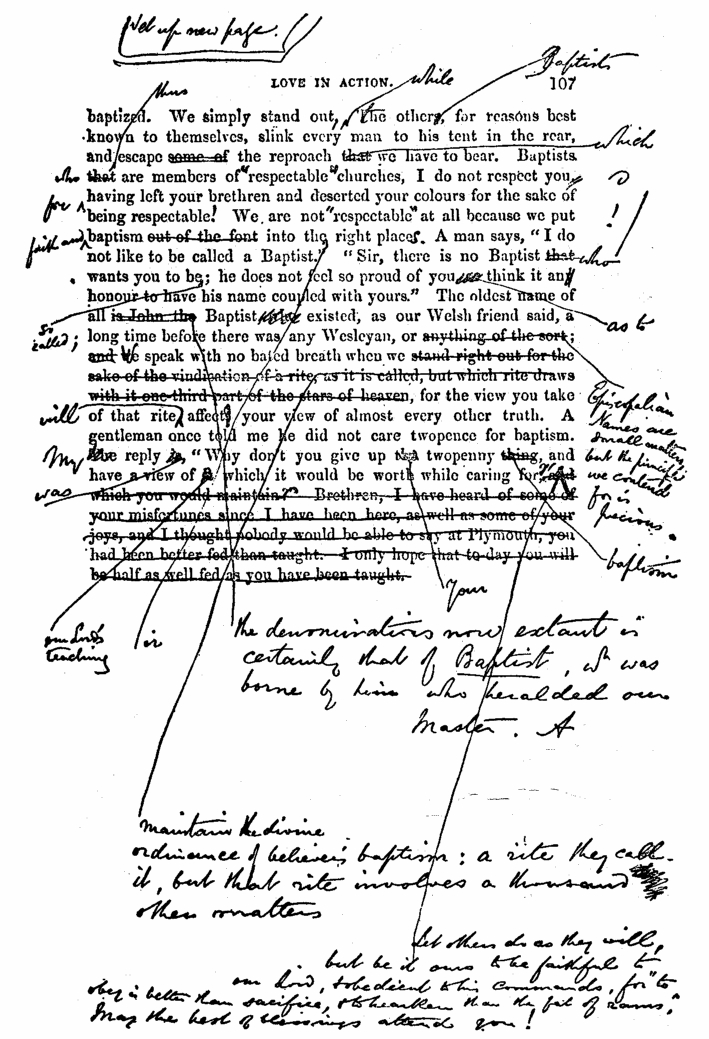 Set up new page.
LOVE IN ACTION. 107
while
Baptists
thus
baptized. We simply stand out, The others, for reasons best
known to themselves, slink every man to his tent in the rear,
which
and escape some of the reproach that we have to bear. Baptists
who that are members of "respectable" churches, I do not respect you,
for having left your brethren and deserted your colours for the sake of
being respectable! We are not "respectable" at all because we put
faith and baptism out of the font into the right places. A man says, "I do
not like to be called a Baptist." "Sir, there is no Baptist that who
wants you to be; he does not feel so proud of you as to think it any
honour to have his name coupled with yours." The oldest name of
all is John the Baptist existed, as our Welsh friend said, a
as to
so called; long time before there was any Wesleyan, or anything of the sort;
and We speak with no bated breath when we stand right out for the
sake of the vindication of a rite, as it is called, but which rite draws
with it one-third part of the stars of heaven, for the view you take
will of that rite affects your view of almost every other truth. A
gentleman once told me he did not care twopence for baptism.
My The reply is, "Why don't you give up the twopenny thing, and
was
have a view of it which it would be worth while caring for, and
which you would maintain?" Brethren, I have heard of some of
your misfortunes since I have been here, as well as some of your
joys, and I thought nobody would be able to say at Plymouth, you
had been better fed than taught. I only hope that to-day you will
be half as well fed as you have been taught.
Episcopalian
Names are
small matters
but the principle
we contend
for is
precious.
baptism
your
our Lord's
teaching
is
the denominations now extant is
certainly that of Baptist, wh was
borne by him who heralded our
Master. A
maintain the divine
ordinance of believers baptism: a rite they call
it, but that rite involves a thousand
other matters
Let others do as they will,
but be it ours to be faithful to
our Lord, & obedient to his commands, for "to
obey is better than sacrifice, & to hearken than the fat of rams."
May the best of blessings attend you!